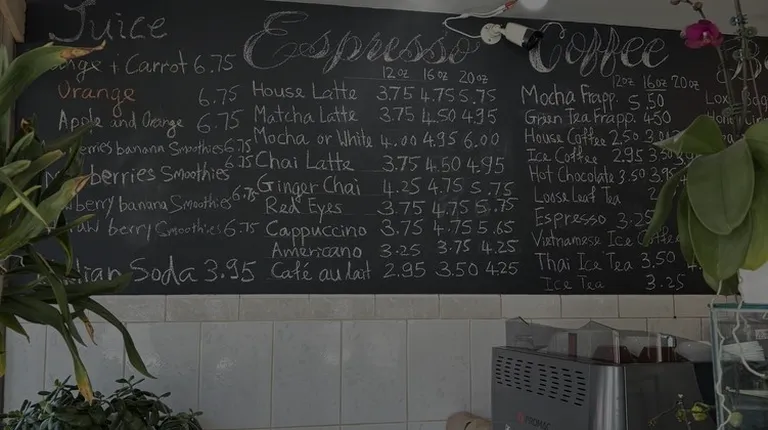 Juice
+ Carrot 6.75
Orange 6.75
Apple and Orange 6.75
banana Smoothies 6.75
berries Smoothies 6.75
banana Smoothies 6.75
berry Smoothies 6.75
Soda 3.95
Espresso
12oz 16oz 20oz
House Latte 3.75 4.75 5.75
Matcha Latte 3.75 4.50 4.95
Mocha or White 4.00 4.95 6.00
Chai Latte 3.75 4.50 4.95
Ginger Chai 4.25 4.75 5.75
Red Eyes 3.75 4.75 5.75
Cappuccino 3.75 4.75 5.65
Americano 3.25 3.75 4.25
Café au lait 2.95 3.50 4.25
Coffee
12oz 16oz 20oz
Mocha Frapp. 5.50
Green Tea Frapp. 4.50
House Coffee 2.50
Ice Coffee 2.95 3.50
Hot Chocolate 3.50
Loose Leaf Tea
Espresso 3.25
Vietnamese Ice Coffee
Thai Ice Tea 3.50
Ice Tea 3.25